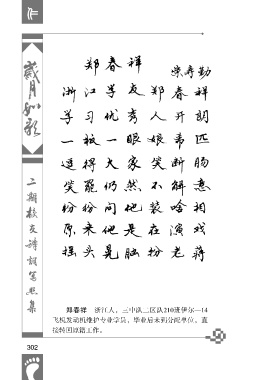 作
岁月如歌
二期校友诗词写照集
郑春祥
柴寿勤
浙江学友郑春祥
学习优秀人开朗
一板一眼娘弗匹
逗得大家笑断肠
笑罢仍然不解意
纷纷问他装啥相
原来他是在演戏
摇头晃脑扮老蒋
郑春祥 浙江人，三中队二区队210班伊尔—14
飞机发动机维护专业学员，毕业后未到分配单位，直
接转回原籍工作。
302